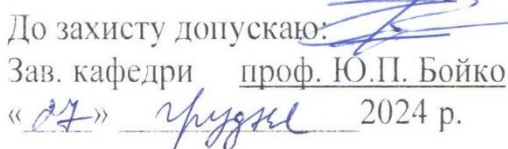 До захисту допускаю:
Зав. кафедри проф. Ю.П. Бойко
« 27 » грудня 2024 р.